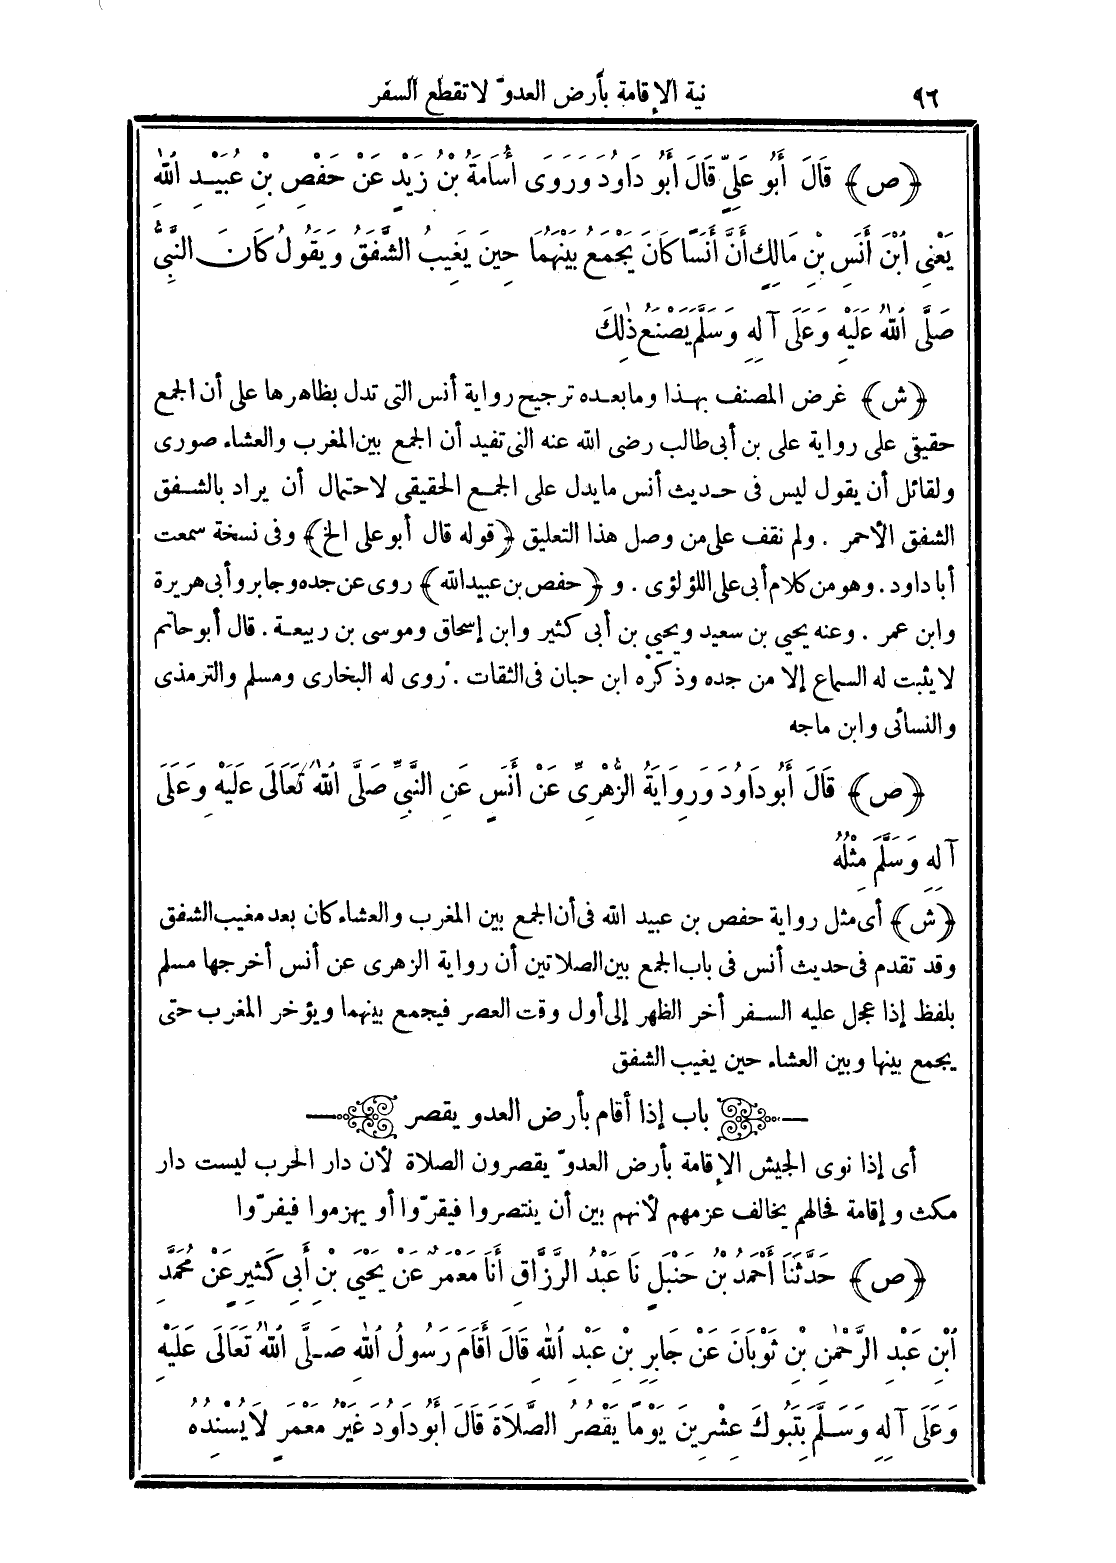 ٩٦
نية الإقامة بأرض العدوّ لا تقطع السفر
﴿ص﴾ قَالَ أَبُو عَلِيٍّ قَالَ أَبُو دَاوُدَ وَرَوَى أُسَامَةُ بْنُ زَيْدٍ عَنْ حَفْصِ بْنِ عُبَيْدِ اللهِ
يَعْنِي ابْنَ أَنَسِ بْنِ مَالِكٍ أَنَّ أَنَسًا كَانَ يَجْمَعُ بَيْنَهُمَا حِينَ يَغِيبُ الشَّفَقُ وَيَقُولُ كَانَ النَّبِيُّ
صَلَّى اللهُ عَلَيْهِ وَعَلَى آلِهِ وَسَلَّمَ يَصْنَعُ ذَلِكَ
﴿ش﴾ غرض المصنف بهذا وما بعده ترجيح رواية أنس التى تدل بظاهرها على أن الجمع
حقيقى على رواية على بن أبى طالب رضى الله عنه التى تفيد أن الجمع بين المغرب والعشاء صورى
ولقائل أن يقول ليس فى حديث أنس ما يدل على الجمع الحقيقى لاحتمال أن يراد بالشفق
الشفق الأحمر . ولم نقف على من وصل هذا التعليق ﴿قوله قال أبو على الخ﴾ وفى نسخة سمعت
أبا داود . وهو من كلام أبى على اللؤلؤى . و ﴿حفص بن عبيد الله﴾ روى عن جده وجابر وأبى هريرة
وابن عمر . وعنه يحيى بن سعيد ويحيى بن أبى كثير وابن إسحاق وموسى بن ربيعة . قال أبو حاتم
لا يثبت له السماع إلا من جده وذكره ابن حبان فى الثقات . روى له البخارى ومسلم والترمذى
والنسائى وابن ماجه
﴿ص﴾ قَالَ أَبُو دَاوُدَ وَرِوَايَةُ الزُّهْرِيِّ عَنْ أَنَسٍ عَنِ النَّبِيِّ صَلَّى اللهُ تَعَالَى عَلَيْهِ وَعَلَى
آلِهِ وَسَلَّمَ مِثْلُهُ
﴿ش﴾ أى مثل رواية حفص بن عبيد الله فى أن الجمع بين المغرب والعشاء كان بعد مغيب الشفق
وقد تقدم فى حديث أنس فى باب الجمع بين الصلاتين أن رواية الزهرى عن أنس أخرجها مسلم
بلفظ إذا عجل عليه السفر أخر الظهر إلى أول وقت العصر فيجمع بينهما ويؤخر المغرب حتى
يجمع بينها وبين العشاء حين يغيب الشفق
باب إذا أقام بأرض العدو يقصر
أى إذا نوى الجيش الإقامة بأرض العدوّ يقصرون الصلاة لأن دار الحرب ليست دار
مكث وإقامة فحالهم يخالف عزمهم لأنهم بين أن ينتصروا فيقرّوا أو يهزموا فيفرّوا
﴿ص﴾ حَدَّثَنَا أَحْمَدُ بْنُ حَنْبَلٍ نَا عَبْدُ الرَّزَّاقِ أَنَا مَعْمَرٌ عَنْ يَحْيَى بْنِ أَبِي كَثِيرٍ عَنْ مُحَمَّدِ
ابْنِ عَبْدِ الرَّحْمٰنِ بْنِ ثَوْبَانَ عَنْ جَابِرِ بْنِ عَبْدِ اللهِ قَالَ أَقَامَ رَسُولُ اللهِ صَلَّى اللهُ تَعَالَى عَلَيْهِ
وَعَلَى آلِهِ وَسَلَّمَ بِتَبُوكَ عِشْرِينَ يَوْمًا يَقْصُرُ الصَّلَاةَ قَالَ أَبُو دَاوُدَ غَيْرُ مَعْمَرٍ لَا يُسْنِدُهُ